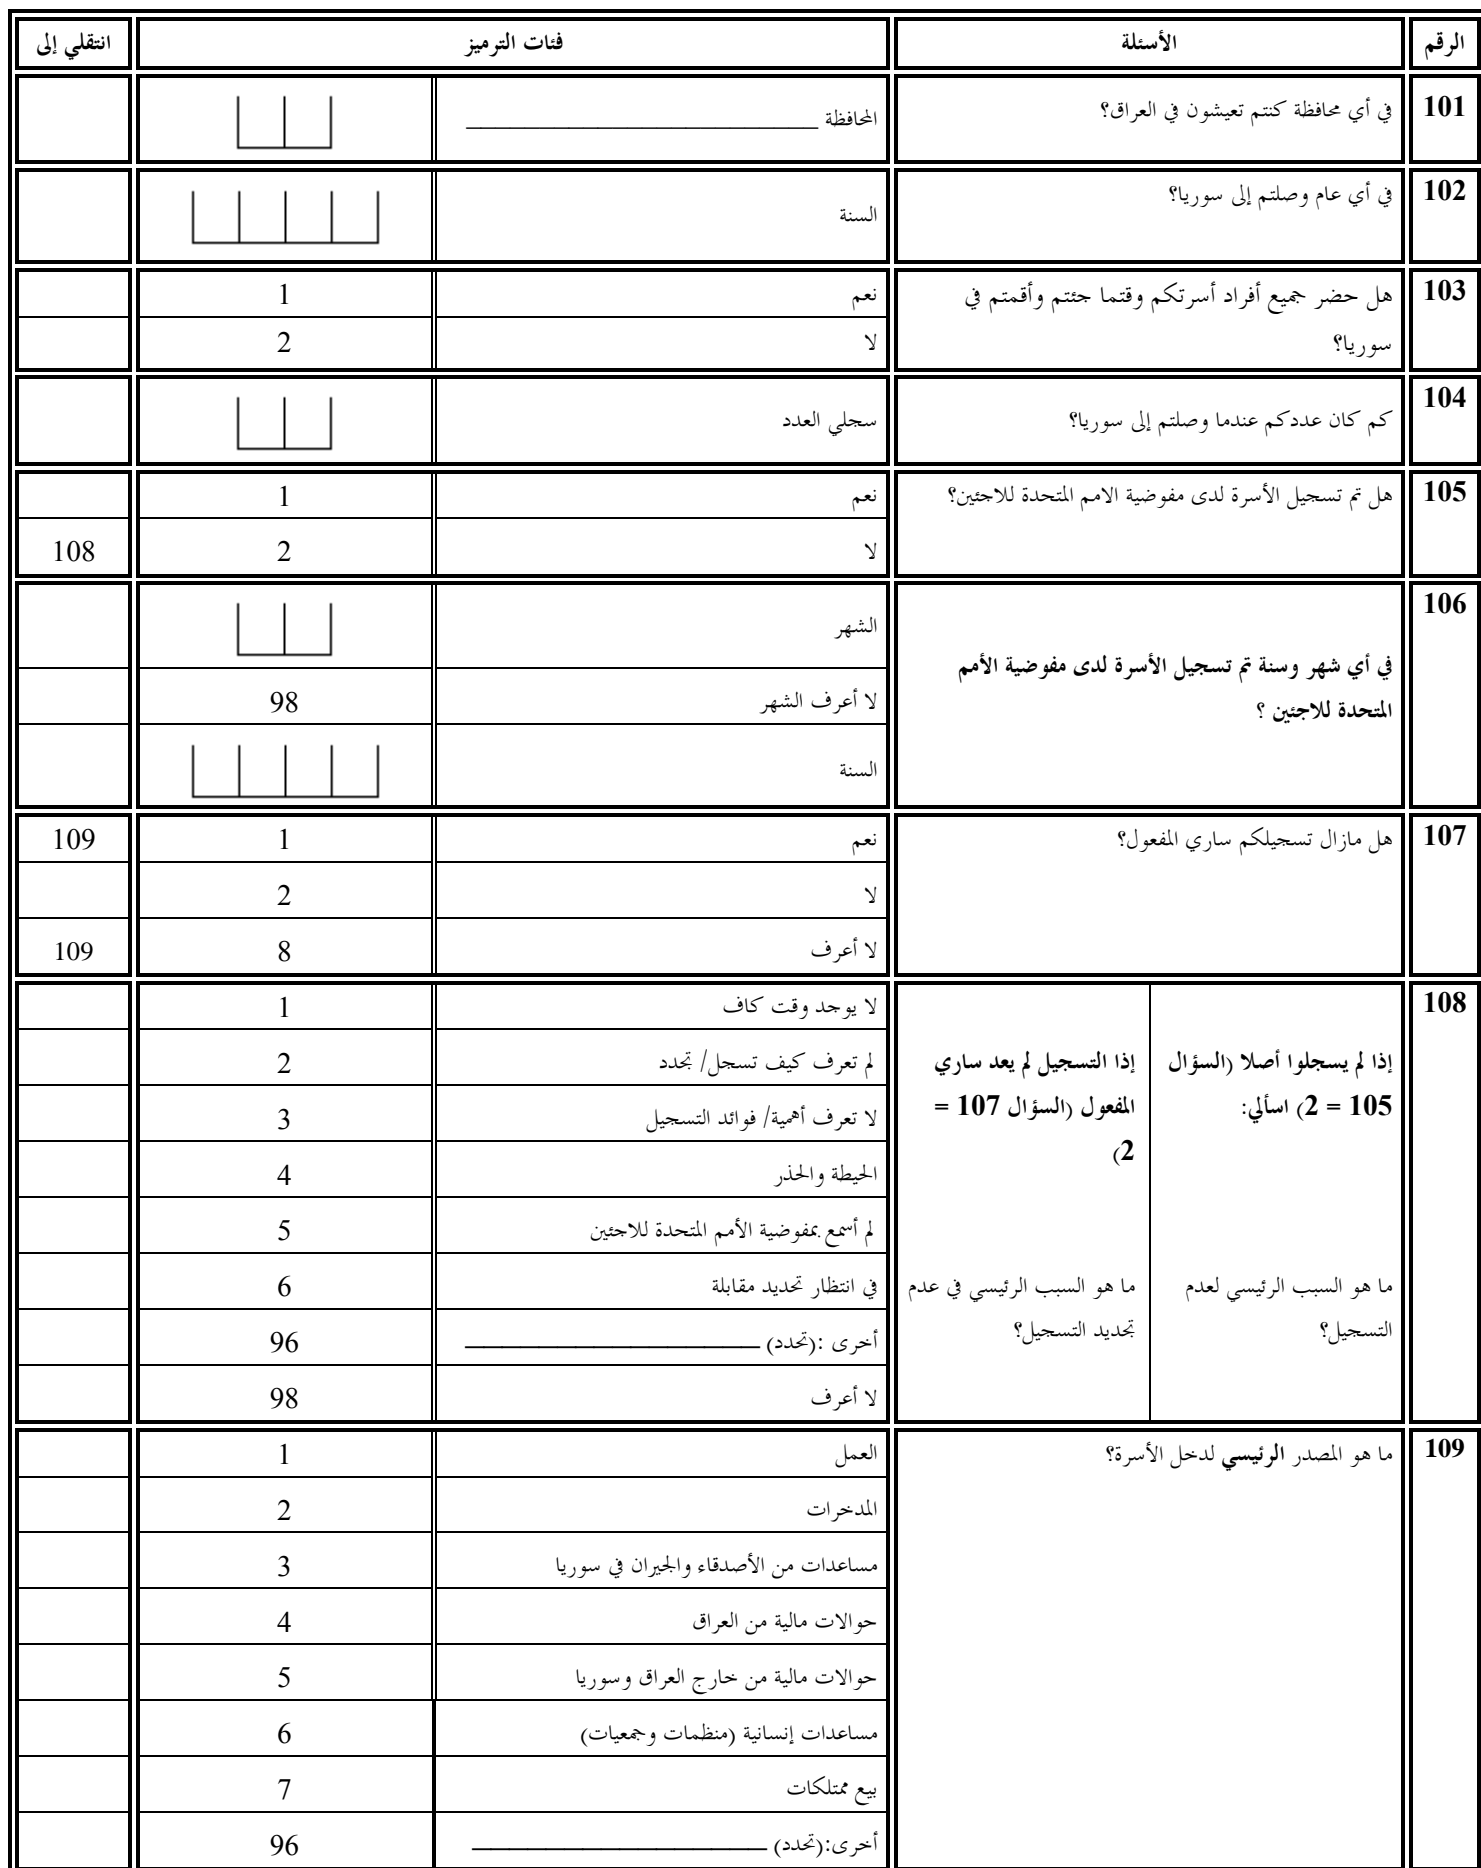 الرقم الأسئلة فئات الترميز انتقلي إلى
101 في أي محافظة كنتم تعيشون في العراق؟ المحافظة ____________________
102 في أي عام وصلتم إلى سوريا؟ السنة
103 هل حضر جميع أفراد أسرتكم وقتما جئتم وأقمتم في نعم 1
سوريا؟ لا 2
104 كم كان عددكم عندما وصلتم إلى سوريا؟ سجلي العدد
105 هل تم تسجيل الأسرة لدى مفوضية الامم المتحدة للاجئين؟ نعم 1
لا 2 108
106
الشهر
في أي شهر وسنة تم تسجيل الأسرة لدى مفوضية الأمم
المتحدة للاجئين ؟
لا أعرف الشهر 98
السنة
107 هل مازال تسجيلكم ساري المفعول؟ نعم 1 109
لا 2
لا أعرف 8 109
108
إذا لم يسجلوا أصلا (السؤال
105 = 2) اسألي:
ما هو السبب الرئيسي لعدم
التسجيل؟
إذا التسجيل لم يعد ساري
المفعول (السؤال 107 =
2)
ما هو السبب الرئيسي في عدم
تجديد التسجيل؟
لا يوجد وقت كاف 1
لم تعرف كيف تسجل/ تجدد 2
لا تعرف أهمية/ فوائد التسجيل 3
الحيطة والحذر 4
لم أسمع بمفوضية الأمم المتحدة للاجئين 5
في انتظار تحديد مقابلة 6
أخرى :(تحدد) ____________________ 96
لا أعرف 98
109 ما هو المصدر الرئيسي لدخل الأسرة؟ العمل 1
المدخرات 2
مساعدات من الأصدقاء والجيران في سوريا 3
حوالات مالية من العراق 4
حوالات مالية من خارج العراق وسوريا 5
مساعدات إنسانية (منظمات وجمعيات) 6
بيع ممتلكات 7
أخرى:(تحدد) ____________________ 96